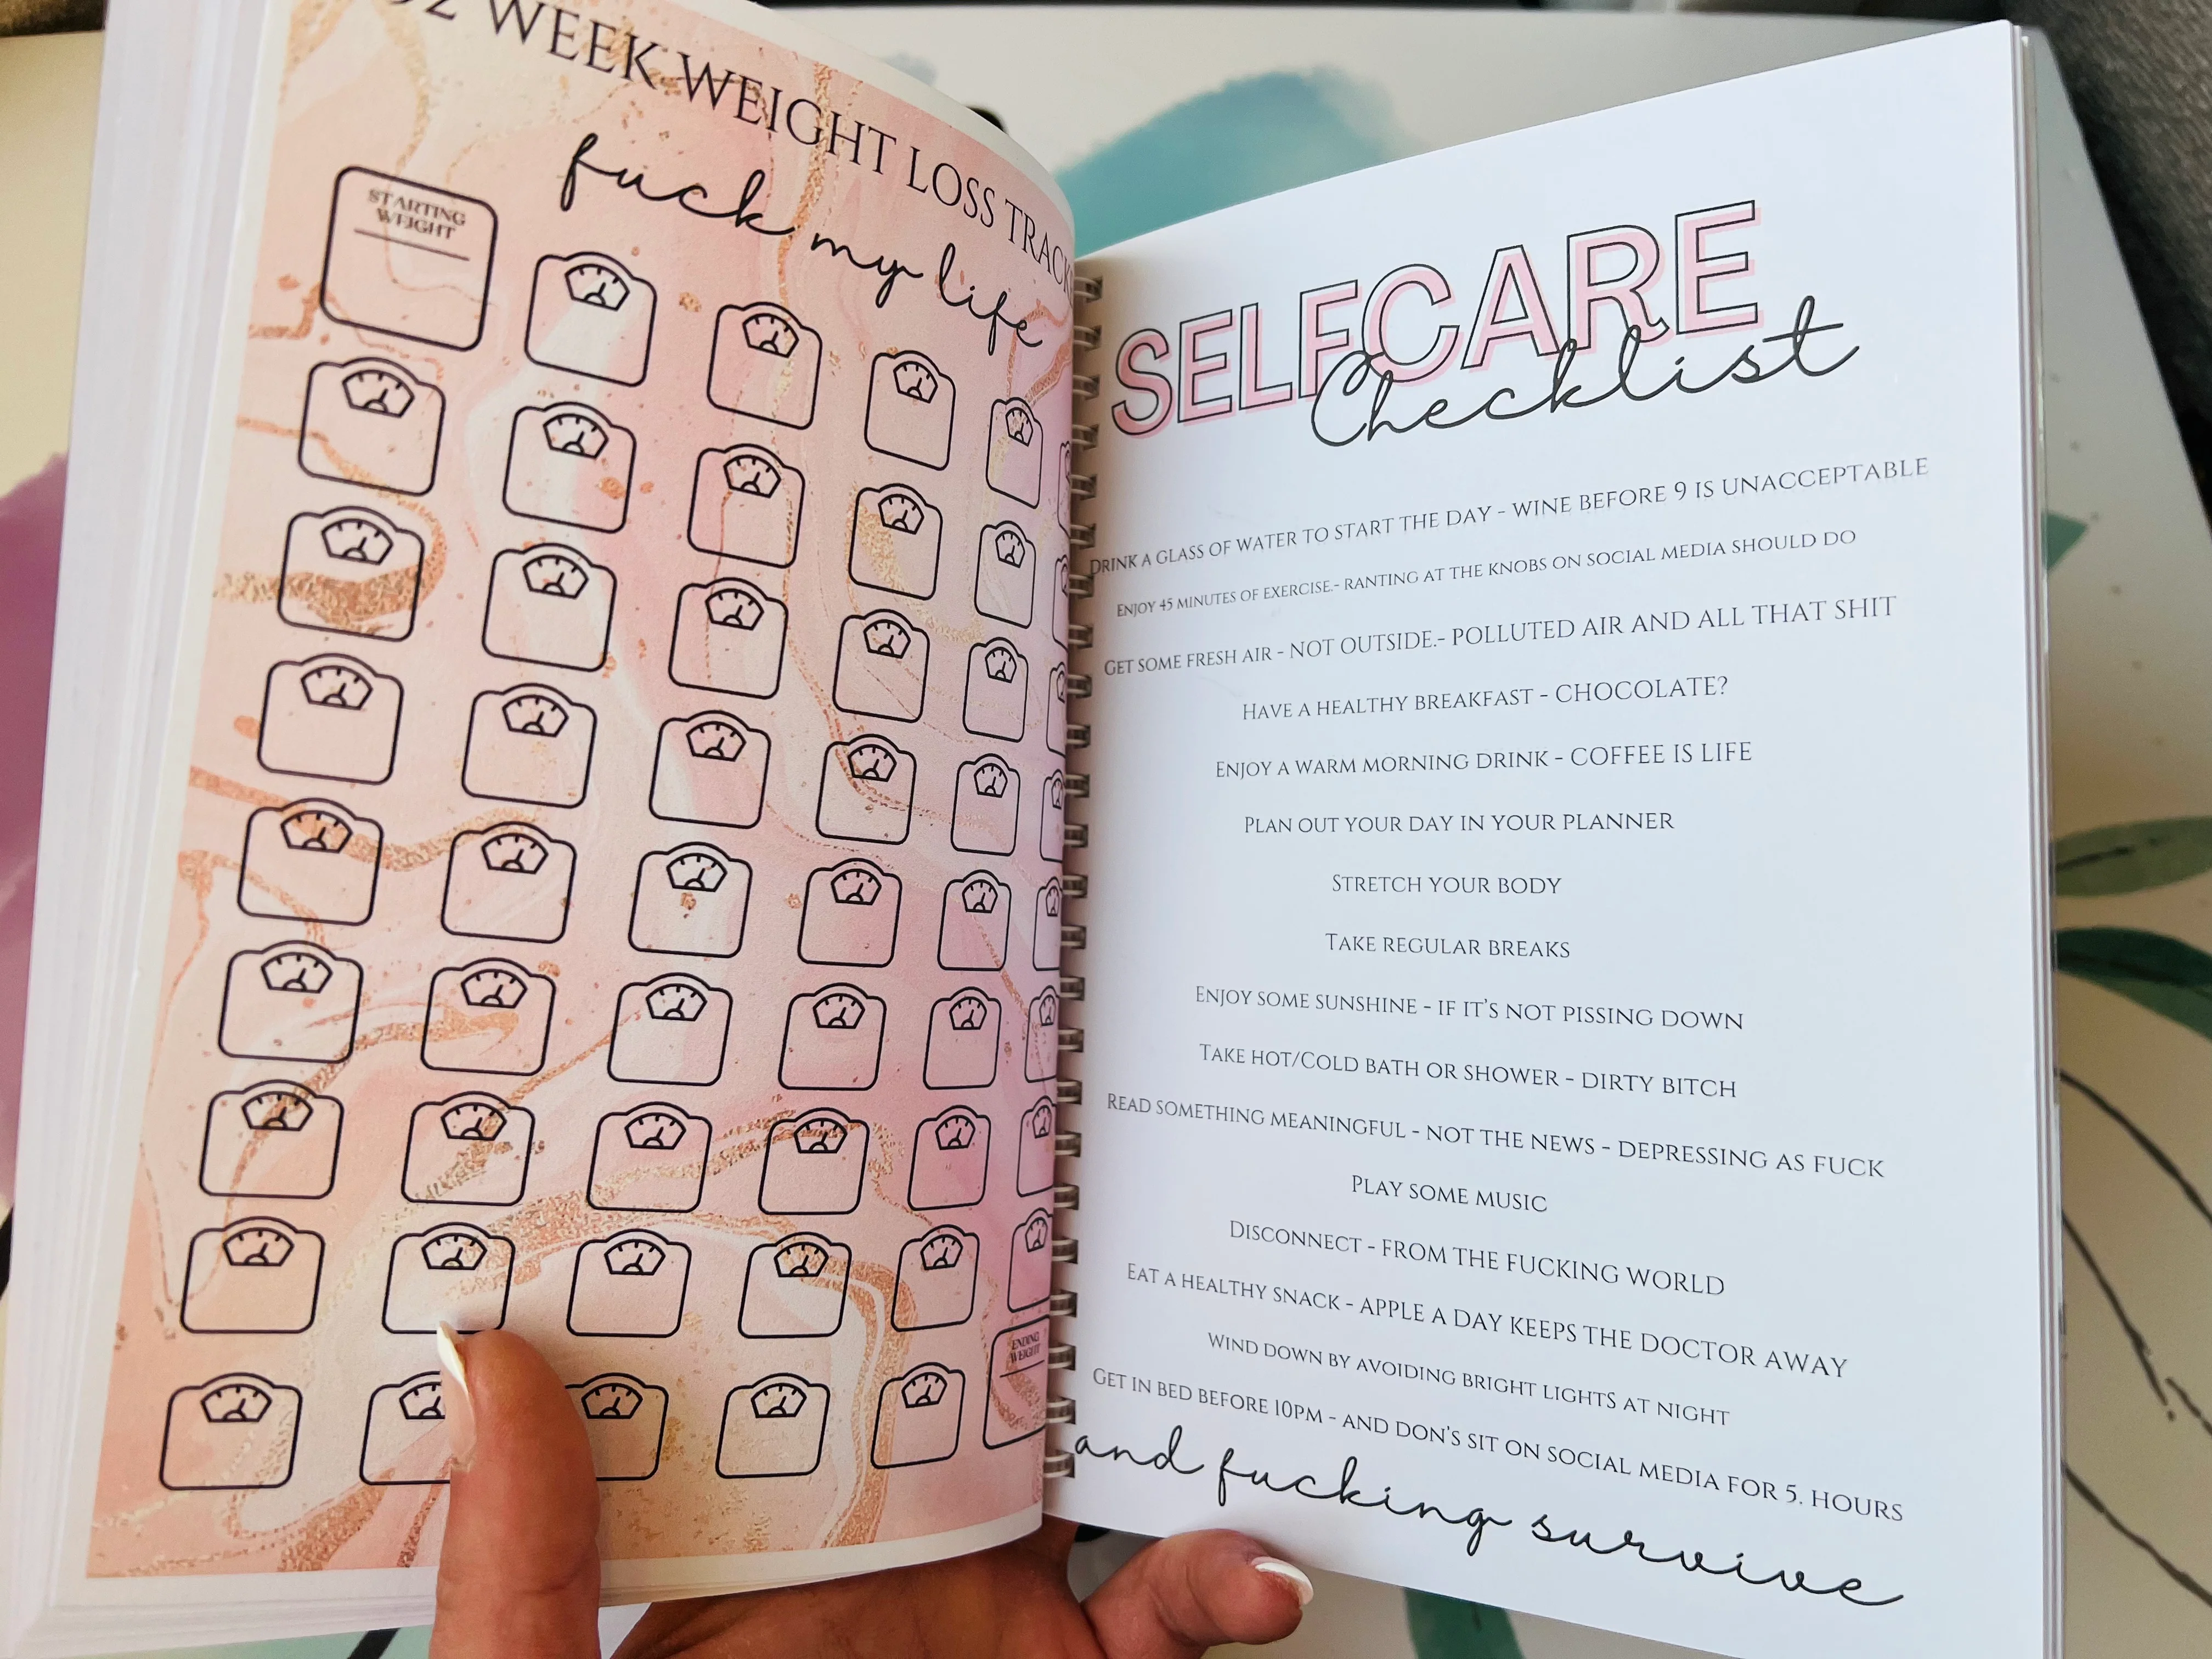 WEEK WEIGHT LOSS
fuck my life
STARTING
WEIGHT
ENDING
WEIGHT
SELFCARE
Checklist
DRINK A GLASS OF WATER TO START THE DAY - WINE BEFORE 9 IS UNACCEPTABLE
ENJOY 45 MINUTES OF EXERCISE.- RANTING AT THE KNOBS ON SOCIAL MEDIA SHOULD DO
GET SOME FRESH AIR - NOT OUTSIDE.- POLLUTED AIR AND ALL THAT SHIT
HAVE A HEALTHY BREAKFAST - CHOCOLATE?
ENJOY A WARM MORNING DRINK - COFFEE IS LIFE
PLAN OUT YOUR DAY IN YOUR PLANNER
STRETCH YOUR BODY
TAKE REGULAR BREAKS
ENJOY SOME SUNSHINE - IF IT'S NOT PISSING DOWN
TAKE HOT/COLD BATH OR SHOWER - DIRTY BITCH
READ SOMETHING MEANINGFUL - NOT THE NEWS - DEPRESSING AS FUCK
PLAY SOME MUSIC
DISCONNECT - FROM THE FUCKING WORLD
EAT A HEALTHY SNACK - APPLE A DAY KEEPS THE DOCTOR AWAY
WIND DOWN BY AVOIDING BRIGHT LIGHTS AT NIGHT
GET IN BED BEFORE 10PM - AND DON'S SIT ON SOCIAL MEDIA FOR 5. HOURS
and fucking survive